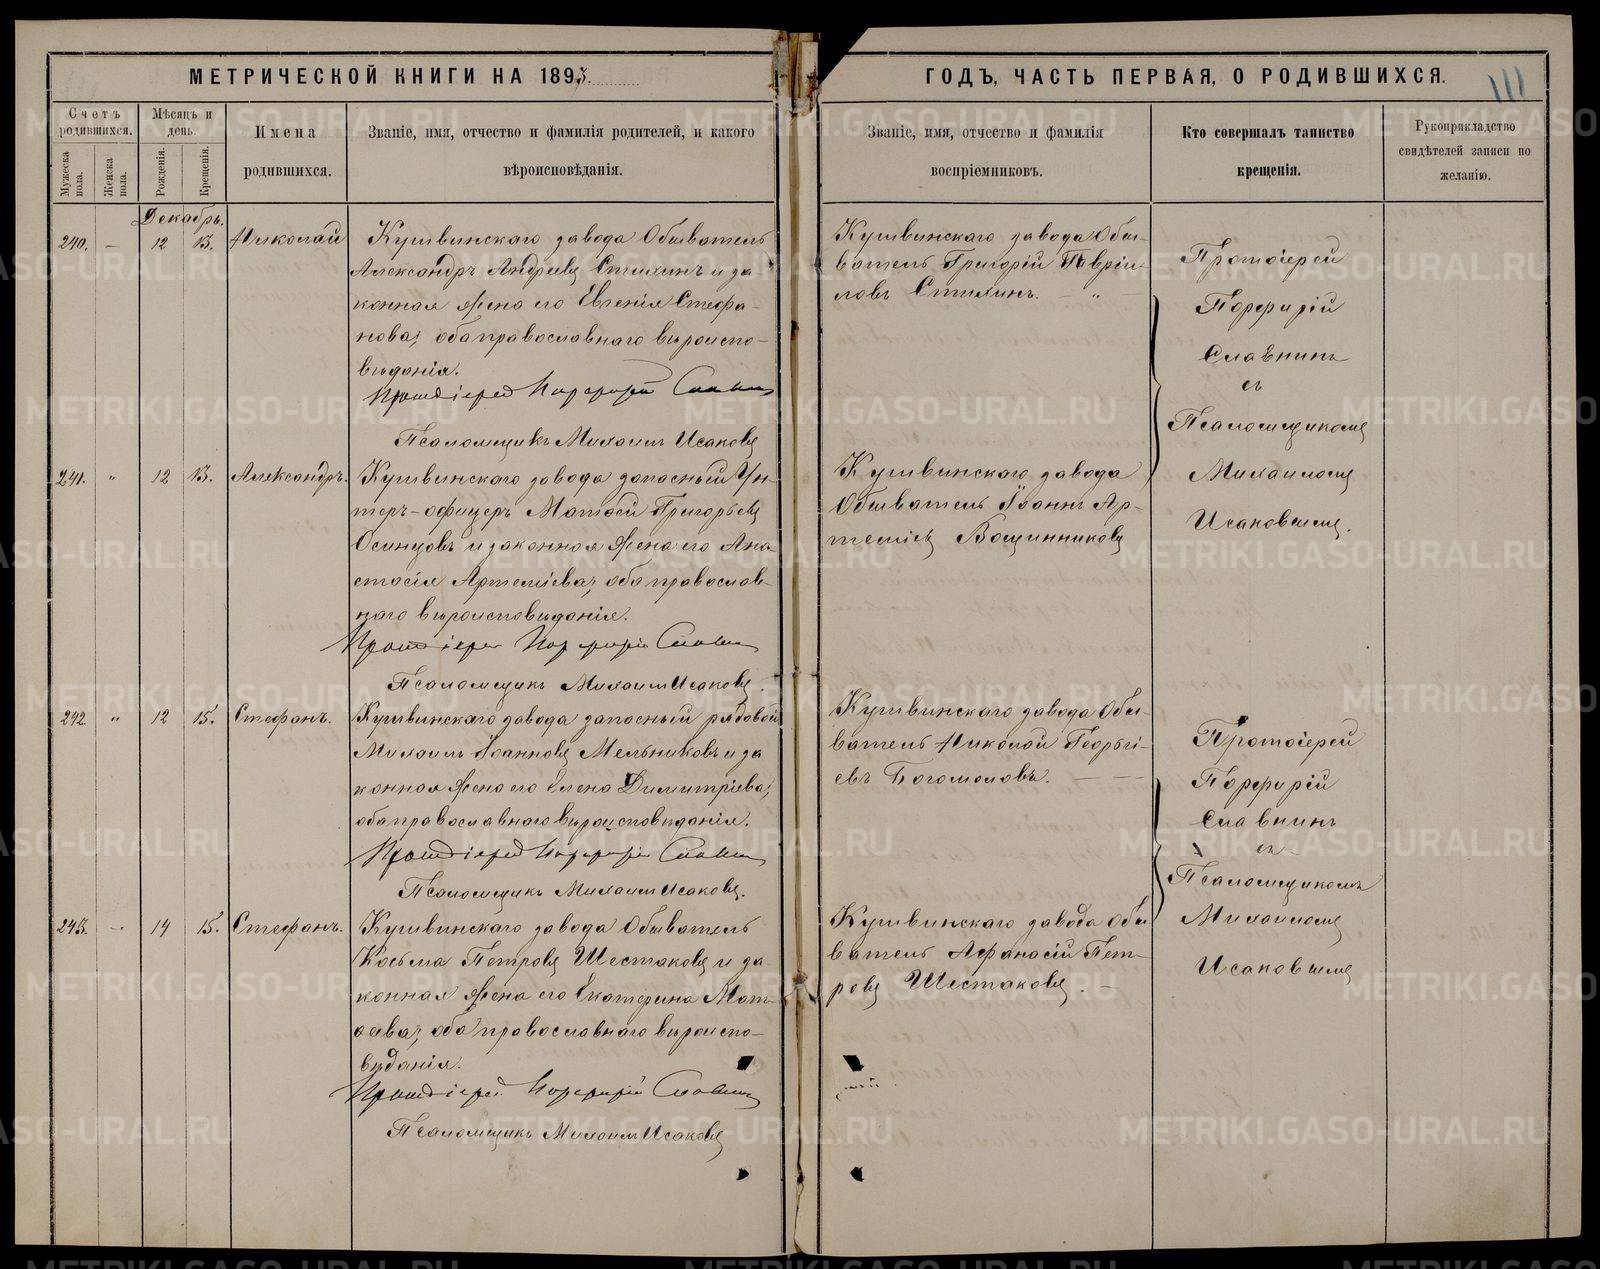 МЕТРИЧЕСКОЙ КНИГИ НА 1893.
Счетъ родившихся.
Мужеска пола.
Женска пола.
Мѣсяцъ и день.
Рожденія.
Крещенія.
Имена
родившихся.
Званіе, имя, отчество и фамилія родителей, и какого
вѣроисповѣданія.
ГОДЪ, ЧАСТЬ ПЕРВАЯ, О РОДИВШИХСЯ.
111
Званіе, имя, отчество и фамилія
воспріемниковъ.
Кто совершалъ таинство
крещенія.
Рукоприкладство
свидѣтелей записи по
желанію.
Декабрь.
240. — 12 13. Николай
Кушвинскаго завода Обыватель
Александръ Андреевъ Стихинъ и за
конная жена его Евгенія Стефа-
нова; оба православнаго вѣроиспо-
вѣданія.
Протоіерей Порфирій Славнинъ
Псаломщикъ Михаилъ Исаковъ
Кушвинскаго завода Обы-
ватель Григорій Гавріи-
ловъ Стихинъ. — "
Протоіерей
Порфирій
Славнинъ
съ
Псаломщикомъ
Михаиломъ
Исаковымъ.
241. " 12 13. Александръ.
Кушвинскаго завода запасный Ун-
теръ-офицеръ Матѳей Григорьевъ
Осинцовъ и законная жена его Ана-
стасія Артеміева; оба православ-
наго вѣроисповѣданія.
Протоіерей Порфирій Славнинъ
Псаломщикъ Михаилъ Исаковъ.
Кушвинскаго завода
Обыватель Іоаннъ Ар-
теміевъ Вощинниковъ
242 " 12 15. Стефанъ.
Кушвинскаго завода запасный рядовой
Михаилъ Іоанновъ Мельниковъ и за
конная жена его Елена Димитріева;
оба православнаго вѣроисповѣданія.
Протоіерей Порфирій Славнинъ
Псаломщикъ Михаилъ Исаковъ.
Кушвинскаго завода Обы-
ватель Николай Георгі-
евъ Богомоловъ. — —
Протоіерей
Порфирій
Славнинъ
съ
Псаломщикомъ
Михаиломъ
Исаковымъ
243. " 14 15. Стефанъ.
Кушвинскаго завода Обыватель
Косьма Петровъ Шестаковъ и за
конная жена его Екатерина Мат-
ѳеева; оба православнаго вѣроиспо-
вѣданія.
Протоіерей Порфирій Славнинъ
Псаломщикъ Михаилъ Исаковъ
Кушвинскаго завода Обы
ватель Аѳанасій Пет-
ровъ Шестаковъ. —
METRIKI.GASO-URAL.RU